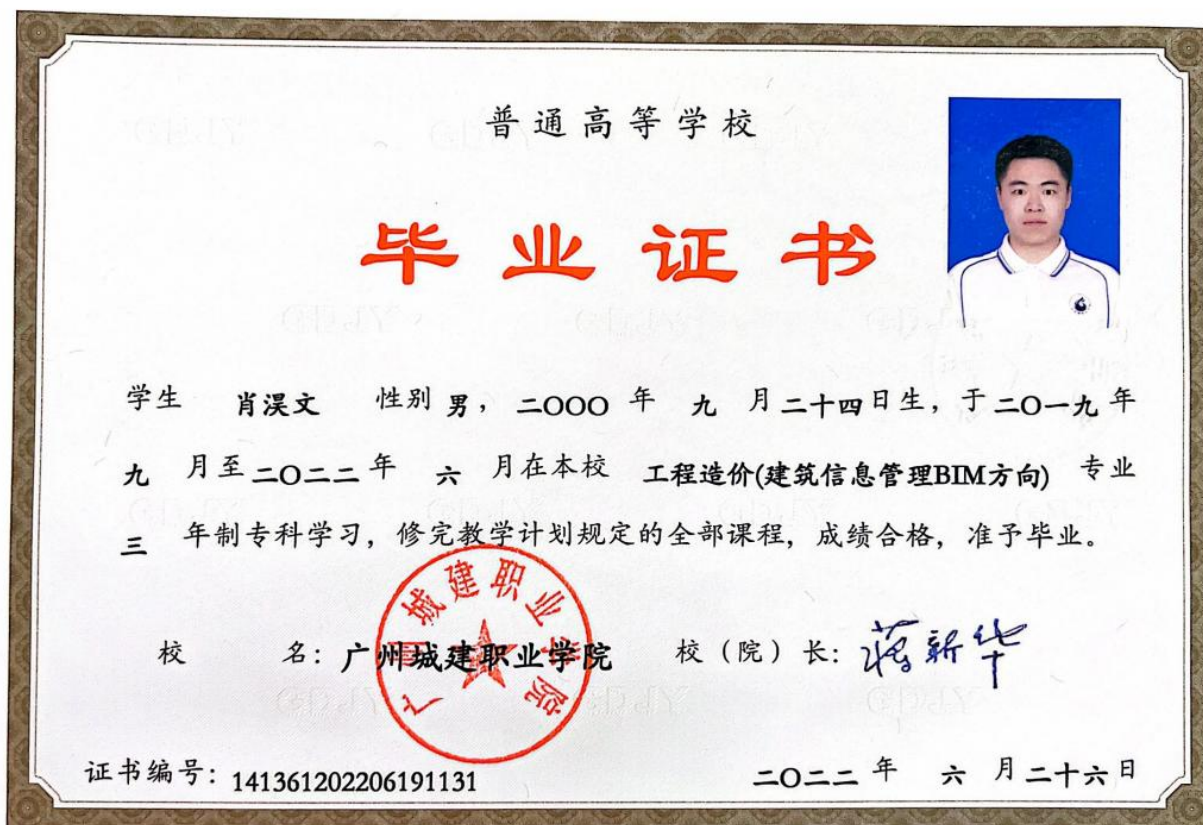 普通高等学校
毕业证书
学生 肖淏文 性别 男，二OOO 年 九 月 二十四 日生，于 二O一九 年
九 月至 二O二二 年 六 月在本校 工程造价(建筑信息管理BIM方向) 专业
三 年制专科学习，修完教学计划规定的全部课程，成绩合格，准予毕业。
广州城建职业学院
校 名：广州城建职业学院 校（院）长：蒋新华
证书编号：141361202206191131 二O二二 年 六 月 二十六 日